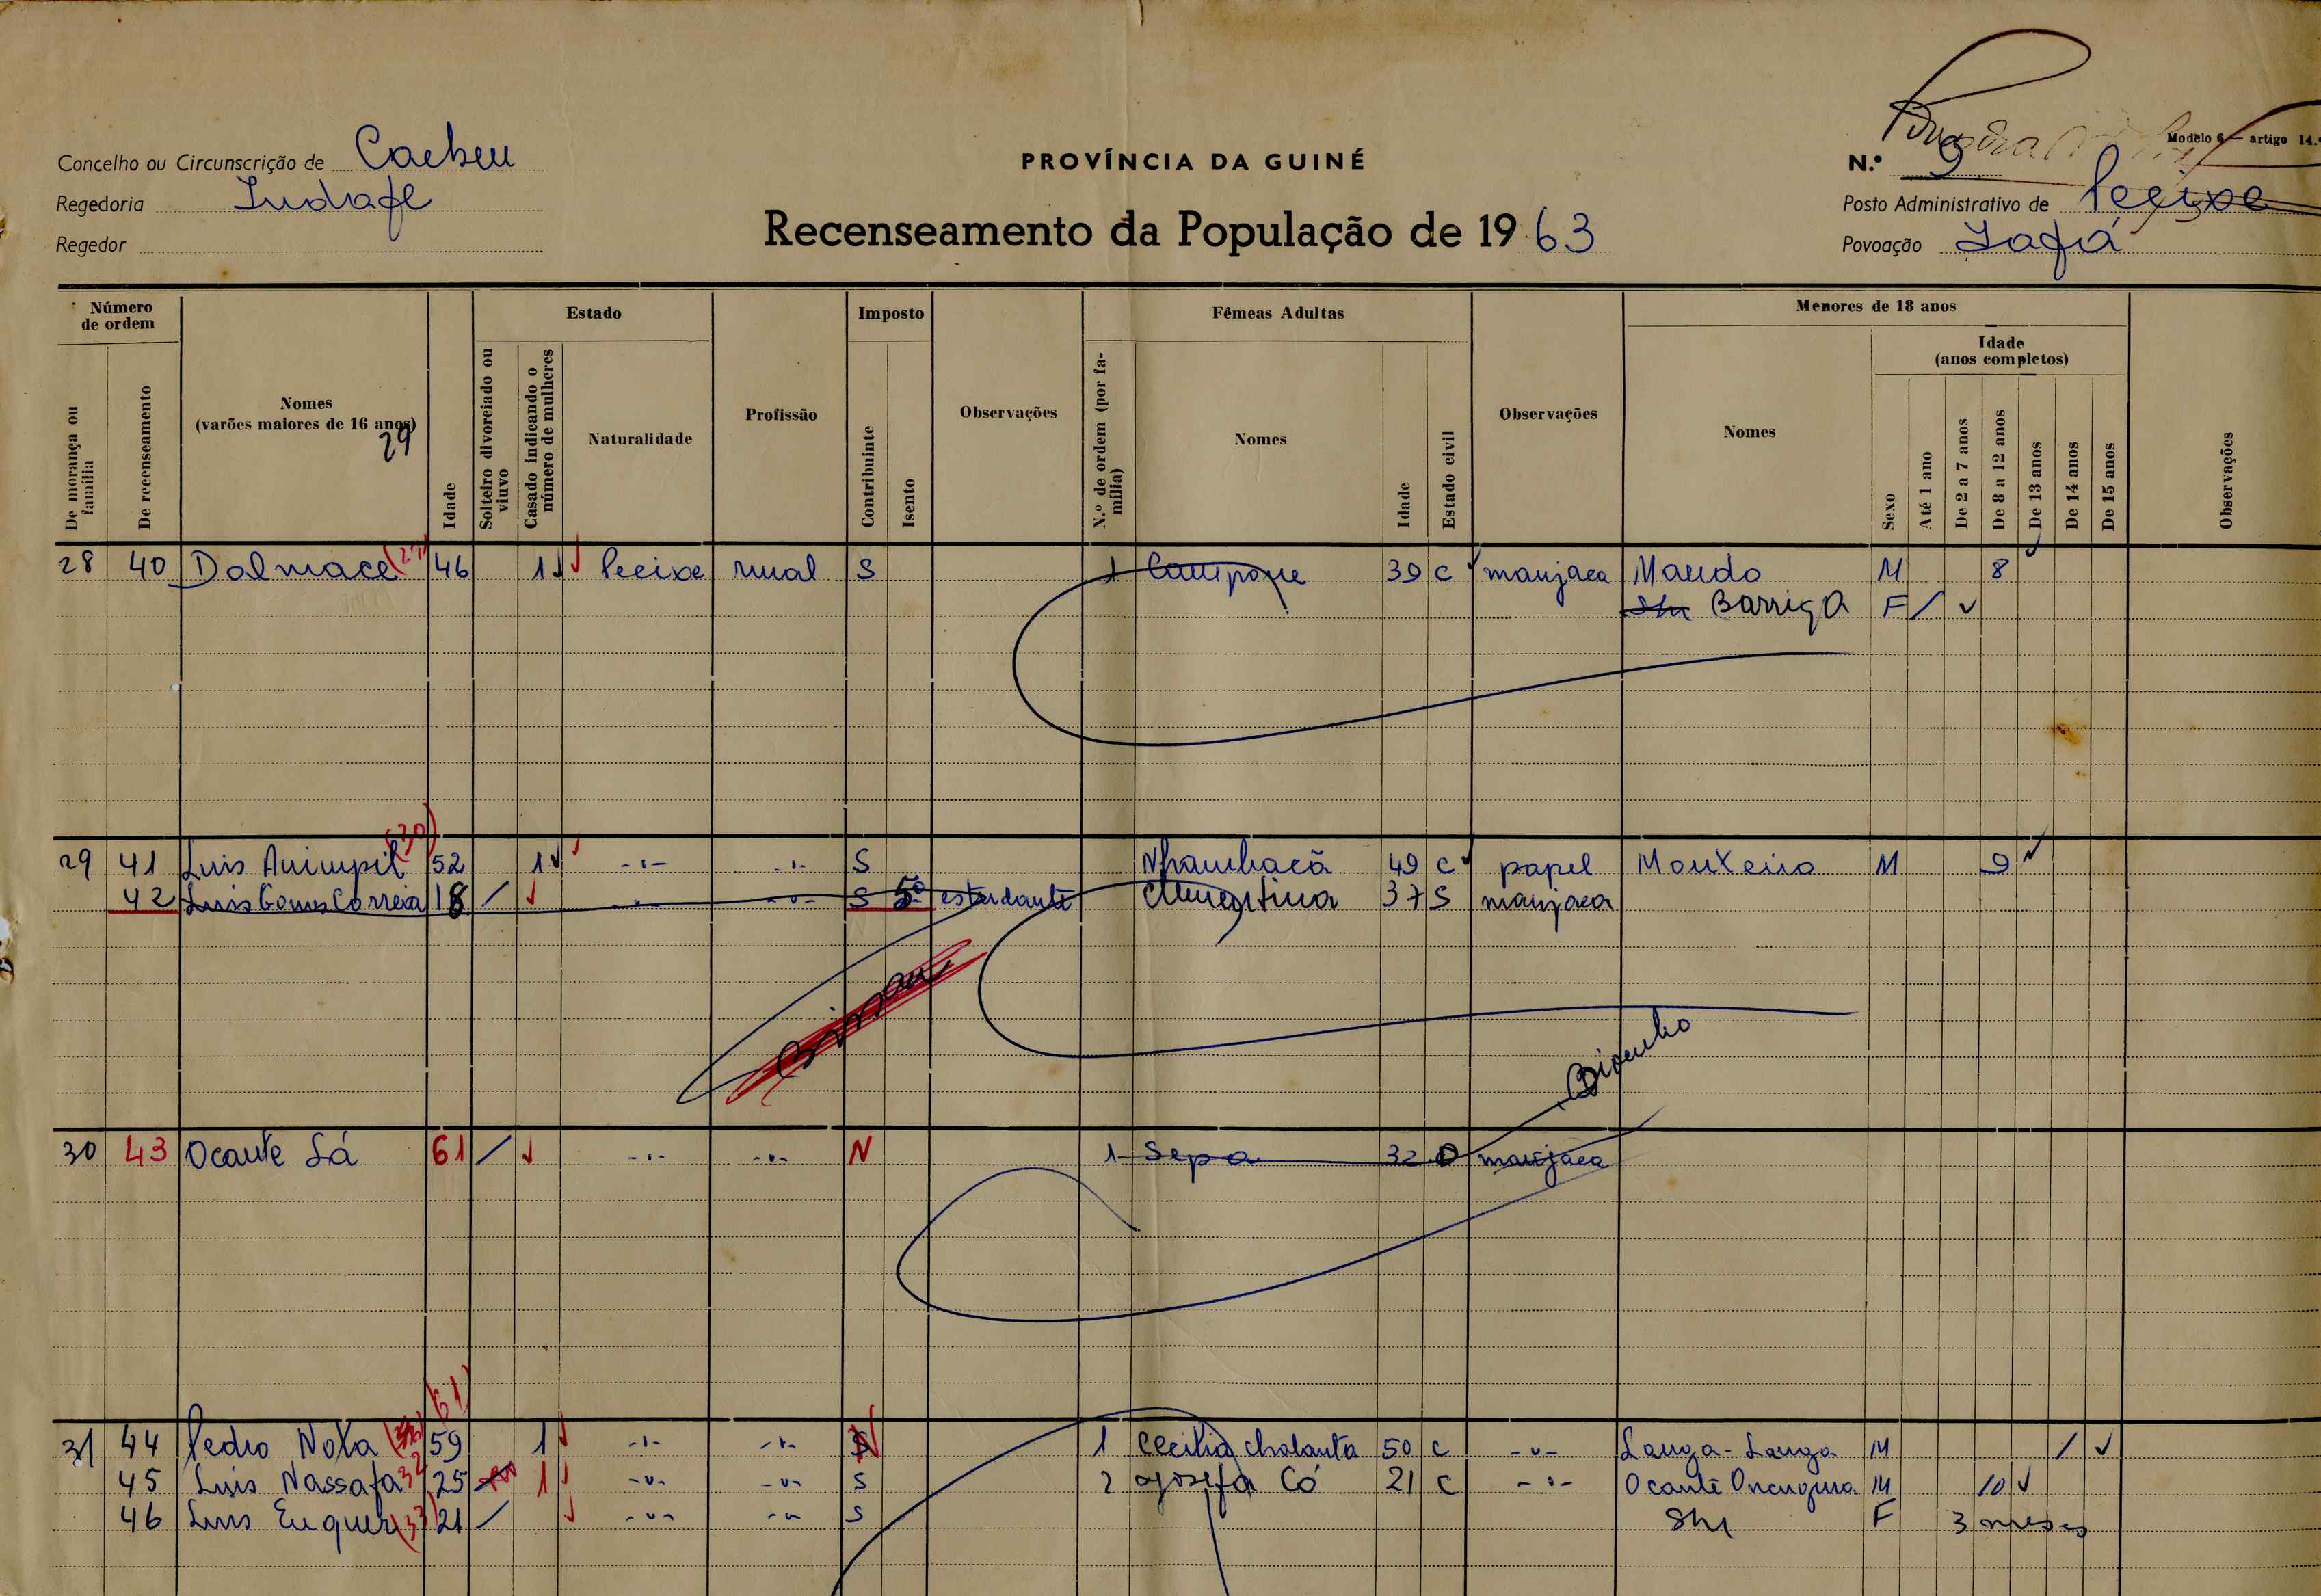 Modelo 6 — artigo 14.
Concelho ou Circunscrição de Cacheu
PROVÍNCIA DA GUINÉ
N.º 9
Regedoria
Posto Administrativo de Pecixe
Regedor
Recenseamento da População de 1963
Povoação
Número de ordem
Estado
Imposto
Fêmeas Adultas
Menores de 18 anos
Idade (anos completos)
De morança ou família
De recenseamento
Nomes (varões maiores de 16 anos)
29
Idade
Solteiro divorciado ou viuvo
Casado indicando o número de mulheres
Naturalidade
Profissão
Contribuinte
Isento
Observações
N.º de ordem (por família)
Nomes
Idade
Estado civil
Observações
Nomes
Sexo
Até 1 ano
De 2 a 7 anos
De 8 a 12 anos
De 13 anos
De 14 anos
De 15 anos
Observações
28 40 Dalmace 46 1 Pecixe rural S 1 39 C manjaca Maudo M 8
Barriga F
(30)
29 41 Luis 52 1 -"- -"- S 49 C papel M 9
42 Luis Gomes Correia 18 -"- -"- S estudante 37 S manjaca
30 43 Ocante Sá 61 -"- -"- N 1 Sepa 32 manjaca
(61)
31 44 Pedro Nota 59 1 -"- -"- N 1 Cecilia 50 C -"- Langa-Langa M
45 Luis Nassafa 32 25 1 -"- -"- S 2 Josefa Có 21 C -"- Ocante M 10
46 Luis (33) 21 -"- -"- S F 3 meses